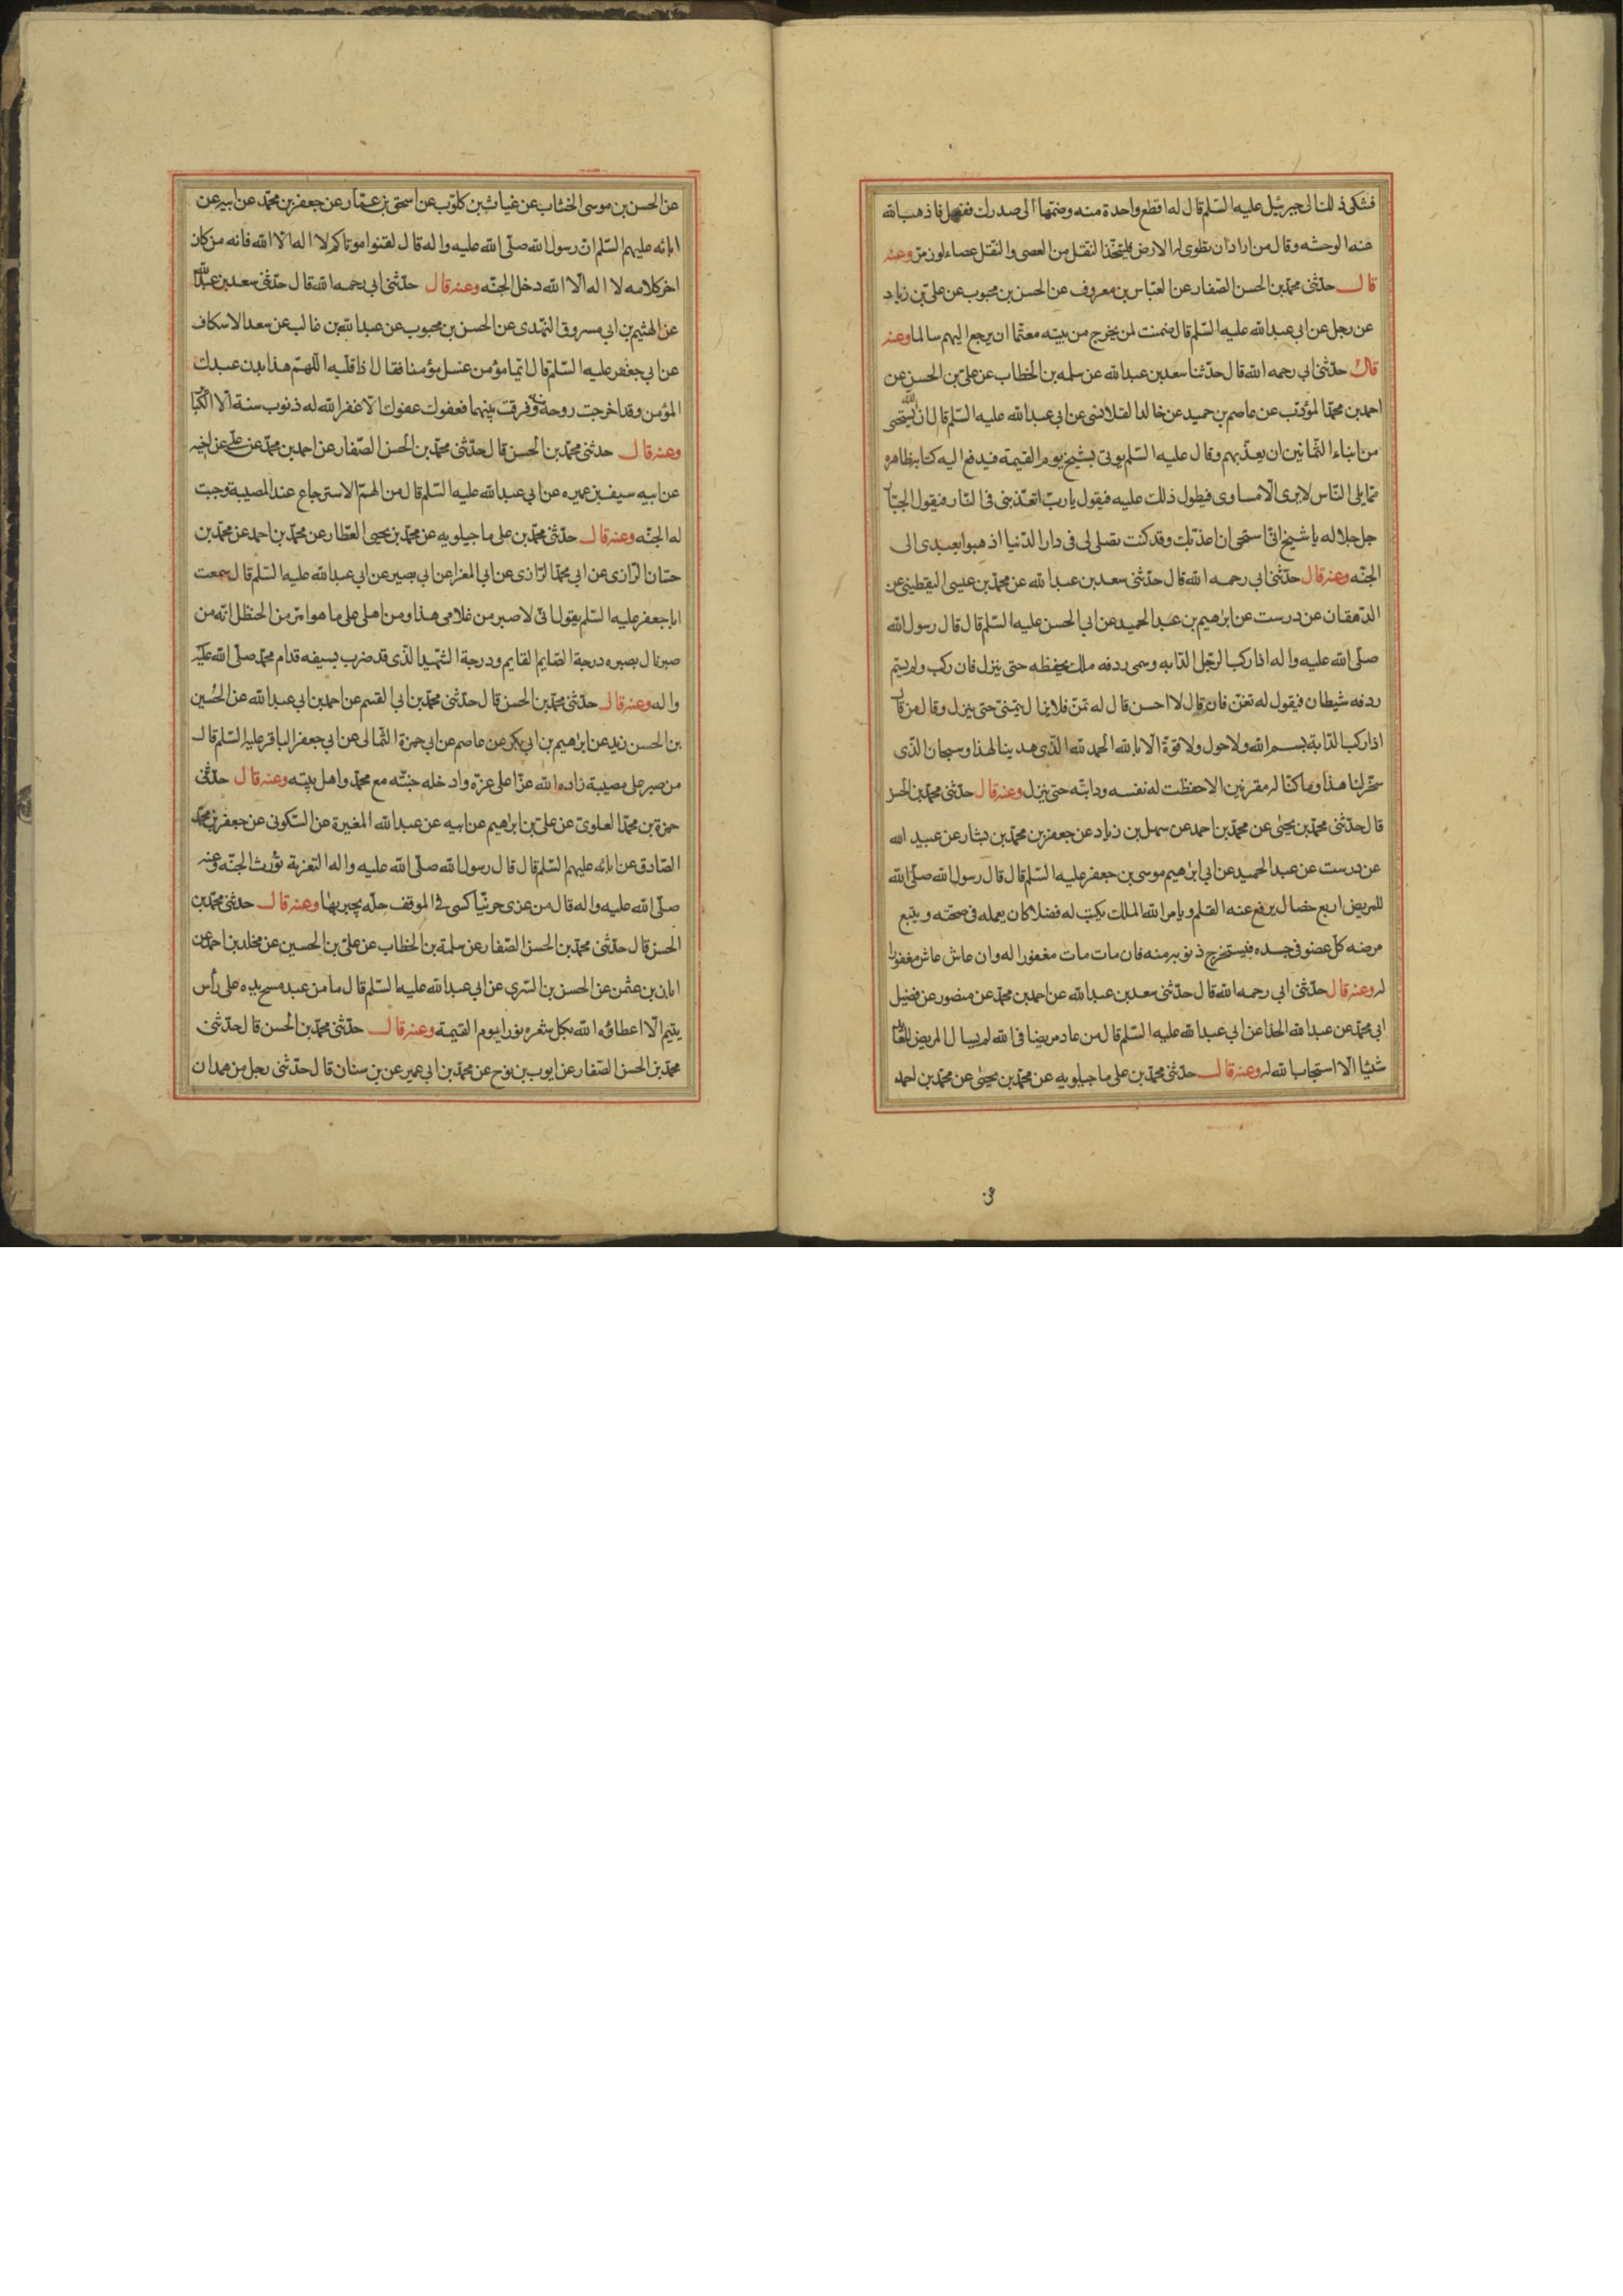 فشكى ذلك الى جبرئيل عليه السّلم قال له اقطع واحدة منه وضمّها الى صدرك ففعل فاذهب الله
عنه الوحشه وقال من اراد ان تطوى له الارض فليتخّذ النقل من العصى والنقل عصاء لوز مرّ وعنه
قال حدّثنى محمّد بن الحسن الصّفار عن العبّاس بن معروف عن الحسن بن محبوب عن علىّ بن زياد
عن رجل عن ابى عبدالله عليه السّلم قال ضمنت لمن يخرج من بيته معتمّا ان يرجع اليهم سالما وعنه
قال حدّثنى ابى رحمه الله قال حدّثنا سعد بن عبدالله عن سلمه بن الخطاب عن علىّ بن الحسن عن
احمد بن محمّد المؤدّب عن عاصم بن حميد عن خالد القلانسى عن ابى عبدالله عليه السّلم قال ان الله يستحى
من ابناء الثمانين ان يعذّبهم وقال عليه السّلم يوتى بشيخ يوم القيمة فيدفع اليه كتابه ظاهره
ممّا يلى النّاس لا يرى الّا مساوى فيطول ذلك عليه فيقول يا ربّ اتعذّبنى فى النّار فيقول الجبّار
جل جلاله يا شيخ انّى استحى ان اعذّبك وقد كنت تصلى لى فى دار الدّنيا اذهبوا بعبدى الى
الجنّه وعنه قال حدّثنى ابى رحمه الله قال حدّثنى سعد بن عبدالله عن محمّد بن عيسى اليقطينى عن
الدّهقان عن درست عن ابرهيم بن عبدالحميد عن ابى الحسن عليه السّلم قال قال رسول الله
صلّى الله عليه واله اذا ركب الرّجل الدّابه وسمى ردفه ملك يحفظه حتى ينزل فان ركب ولم يسّم
ردفه شيطان فيقول له تغنّ فان قال لا احسن قال له تمنّ فلا يزال يتمنّى حتى ينزل وقال من قال
اذا ركب الدّابة بسم الله ولا حول ولا قوّة الّا بالله الحمد لله الّذى هدينا لهذا وسبحان الّذى
سخّر لنا هذا وما كنّا له مقرنين الا حفظت له نفسه ودابّته حتى ينزل وعنه قال حدّثنى محمّد بن الحسن
قال حدّثنى محمّد بن يحيى عن محمّد بن احمد عن سهل بن زياد عن جعفر بن محمّد بن بشار عن عبيد الله
عن درست عن عبدالحميد عن ابى ابرهيم موسى بن جعفر عليه السّلم قال قال رسول الله صلّى الله
للمريض اربع خصال يرفع عنه القلم ويامر الله الملك يكتب له فضلا كان يعمله فى صحّته ويتبع
مرضه كلّ عضو فى جسده فيستخرج ذنوبه منه فان مات مات مغفورا له وان عاش عاش مغفورا
له وعنه قال حدّثنى ابى رحمه الله قال حدّثنى سعد بن عبدالله عن احمد بن محمّد عن منصور عن فضيل
ابى محمّد عن عبدالله الحذا عن ابى عبدالله عليه السّلم قال من عاد مريضا فى الله لم يسال المريض للعائد
شيئا الّا استجاب الله له وعنه قال حدّثنى محمّد بن على ماجيلويه عن محمّد بن يحيى عن محمّد بن احمد
عن الحسن بن موسى الخشاب عن غياث بن كلوب عن اسحق بن عمّار عن جعفر بن محمّد عن ابيه عن
ابائه عليهم السّلم انّ رسول الله صلّى الله عليه واله قال لقنوا موتاكم لا اله الّا الله فانه من كان
اخر كلامه لا اله الّا الله دخل الجنّه وعنه قال حدّثنى ابى رحمه الله قال حدّثنى سعد بن عبدالله
عن الهثيم بن ابى مسروق النهدى عن الحسن بن محبوب عن عبدالله بن غالب عن سعد الاسكاف
عن ابى جعفر عليه السّلم قال ايّما مؤمن غسل مؤمنا فقال اذا قلّبه اللّهمّ هذا بدن عبدك
المؤمن وقد اخرجت روحه وفرقت بينهما فعفوك عفوك الّا غفر الله له ذنوب سنة الّا الكبائر
وعنه قال حدثنى محمّد بن الحسن قال حدّثنى محمّد بن الحسن الصّفار عن احمد بن محمّد عن على عن اخيه
عن ابيه سيف بن عميره عن ابى عبدالله عليه السّلم قال من الهمّ الاسترجاع عند المصيبة وجبت
له الجنّه وعنه قال حدّثنى محمّد بن على ماجيلويه عن محمّد بن يحيى العطّار عن محمّد بن احمد عن محمّد بن
حسّان الرّازى عن ابى محمّد الرّازى عن ابى المغرا عن ابى بصير عن ابى عبدالله عليه السّلم قال سمعت
ابا جعفر عليه السّلم يقول انّى لاصبر من غلامى هذا ومن اهلى على ما هو امرّ من الحنظل انّه من
صبر نال بصبره درجة الصّايم القايم ودرجة الشّهيد الّذى قد ضرب بسيفه قدام محمّد صلّى الله عليه
واله وعنه قال حدّثنى محمّد بن الحسن قال حدّثنى محمّد بن ابى القسم عن احمد بن ابى عبدالله عن الحُسين
بن الحسن زيد عن ابرهيم بن ابى بكر عن عاصم عن ابى حمزة الثمالى عن ابى جعفر الباقر عليه السّلم قال
من صبر على مصيبة زاده الله عزّا على عزّه وادخله جنتّه مع محمّد واهل بيته وعنه قال حدّثنى
حمزة بن محمّد العلوىّ عن علىّ بن ابرهيم عن ابيه عن عبدالله المغيرة عن السّكونى عن جعفر بن محمّد
الصّادق عن ابائه عليهم السّلم قال قال رسول الله صلّى الله عليه واله التعزية تورث الجنّه وعنه
صلّى الله عليه واله قال من عزى حزيّنا كسى فى الموقف حلّه يحبر بها وعنه قال حدثنى محمّد بن
الحسن قال حدّثنى محمّد بن الحسن الصّفار عن سلمة بن الخطاب عن علىّ بن الحسين عن مخلد بن احمد عن
ابان بن عثمن عن الحسن بن السّرى عن ابى عبدالله عليه السّلم قال ما من عبد مسح يده على رأس
يتيم الّا اعطاؤه الله بكل شعره نورا يوم القيمة وعنه قال حدّثنى محمّد بن الحسن قال حدّثنى
محمّد بن الحسن الصّفار عن ايوب بن نوح عن محمّد بن ابى عمير عن بن سنان قال حدّثنى رجل من همدان